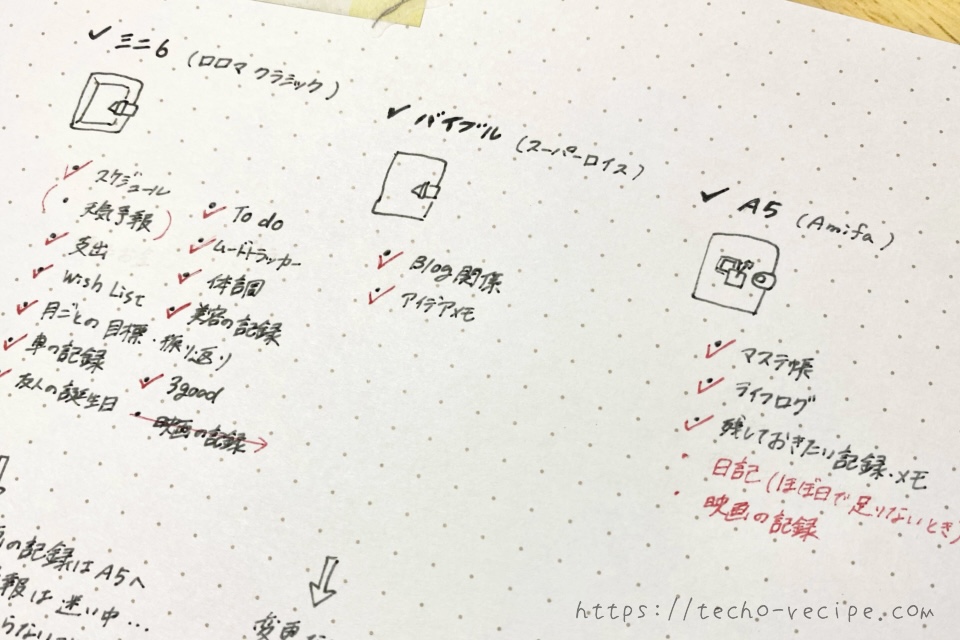 ✓ ミニ6 (ロロマ クラシック)
• スケジュール
(• 天気予報)
• 支出
• Wish List
• 月ごとの目標・振り返り
• 車の記録
友人の誕生日
• To do
• ムードトラッカー
• 体調
• 美容の記録
• 3good
• 映画の記録
の記録は A5へ
報は 迷い中…
らない
✓ バイブル (スーパーロイス)
• Blog関係
• アイデアメモ
変更
✓ A5 (Amifa)
• マステ帳
• ライフログ
• 残しておきたい記録・メモ
• 日記 (ほぼ日で足りないとき)
• 映画の記録
https://techo-recipe.com